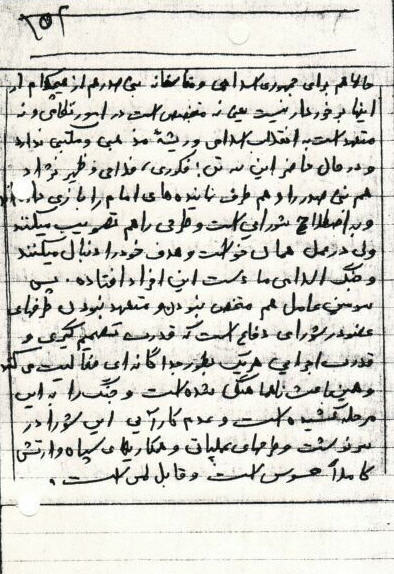 حالا هم برای جمهوری اسلامی و متأسفانه بنی صدر هم از هیچکدام از
اینها برخوردار نیست یعنی نه متخصص است در امور نظامی و نه
متعهد است به انقلاب اسلامی و ریشه مذهبی و مکتبی ندارد
و در حال حاضر این سه تن: فکوری، فلاحی و ظهیر نژاد
هم بنی صدر را و هم طرف نماینده های امام را بازی داده اند
و به اصطلاح شورایی است و طرحی را هم تصویب میکنند
ولی در عمل همان خواست و هدف خود را دنبال میکنند
و جنگ اسلامی ما دست این افراد افتاده. پس
سومین عامل هم متخصص نبودن و متعهد نبودن طرفهای
عضو در شورای دفاع است که قدرت تصمیم گیری و
قدرت اجرایی هریک بطور جداگانه ای فعالیت می کند
و همین باعث ناهماهنگی شده است و جنگ را به این
مرحله کشیده است و عدم کارآیی این شورا در
سرنوشت و طرحهای عملیاتی و همکاریهای سپاه و ارتش
کاملاً محسوس است و قابل لمس است.